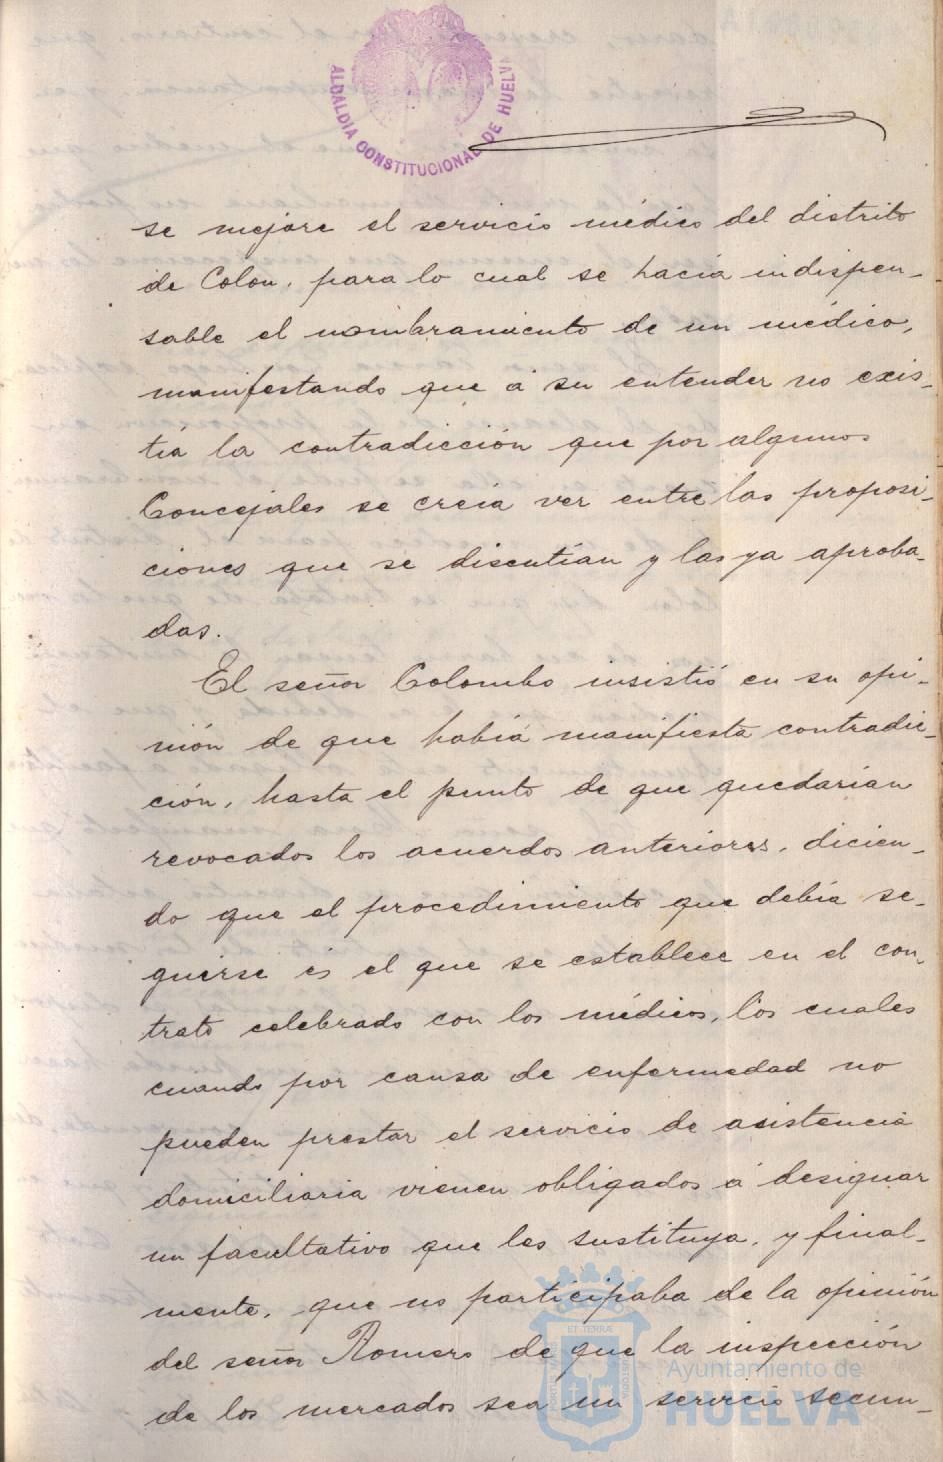 ALDALDIA CONSTITUCIONAL DE HUELVA
se mejore el servicio médico del distrito
de Colon, para lo cual se hacía indispen-
sable el nombramiento de un médico,
manifestando que á su entender no exis-
tía la contradicción que por algunos
Concejales se creía ver entre las proposi-
ciones que se discutían y las ya aproba-
das.
El señor Colombo insistió en su opi-
nión de que había manifiesta contradic-
ción, hasta el punto de que quedarían
revocados los acuerdos anteriores, dicien-
do que el procedimiento que debía se-
guirse és el que se establece en el con-
trato celebrado con los médicos, los cuales
cuando por causa de enfermedad no
pueden prestar el servicio de asistencia
domiciliaria vienen obligados á designar
un facultativo que les sustituya, y final-
mente, que no participaba de la opinión
del señor Romero de que la inspección
de los mercados sea un servicio secun-
Ayuntamiento de
HUELVA